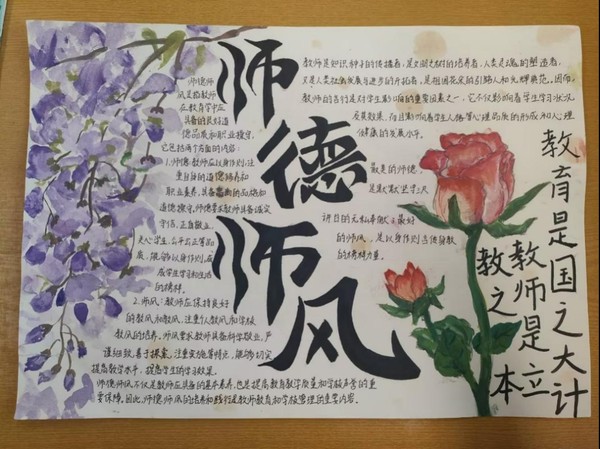 师德师风
师德师
风是指教师
在教育学中应
具备的良好道
德品质和职业操守,
它包括两个方面的内容:
1.师德:教师应以身作则,注
重自身的道德修养和
职业素养,具备高尚的品格和
道德操守,师德要求教师具备诚实
守信、正直敬业、
关心学生、公平公正等品
质,能够以身作则,成
为学生学习和生活
的榜样。
2.师风:教师应保持良好
的教风和教风,注重个人教风和学校
教风的培养。师风要求教师具备科学敬业、严
谨细致、善于探索、注重实践等特点,能够切实
提高教学水平,提高学生的学习效果。
师德师风不仅是教师应具备的基本素养,也是提高教育教学质量和学校声誉的重
要保障。因此,师德师风的培养和践行是教师教育和学校管理的重要内容。
教师是知识种子的传播者,是文明之树的培养者,人类灵魂的塑造者,
又是人类社会发展与进步的开拓者,是祖国花朵的引路人和光辉典范。因而,
教师的言行是对学生影响的重要因素之一,它不仅影响着学生学习状况
及其效果,而且影响着学生人格等心理品质的形成和人心理
健康的发展水平。
最美的师德,
是默默坚守三尺
讲台的无私奉献;最好
的师风,是以身作则言传身教
的榜样力量。
教育是国之大计
教师是立
教之本